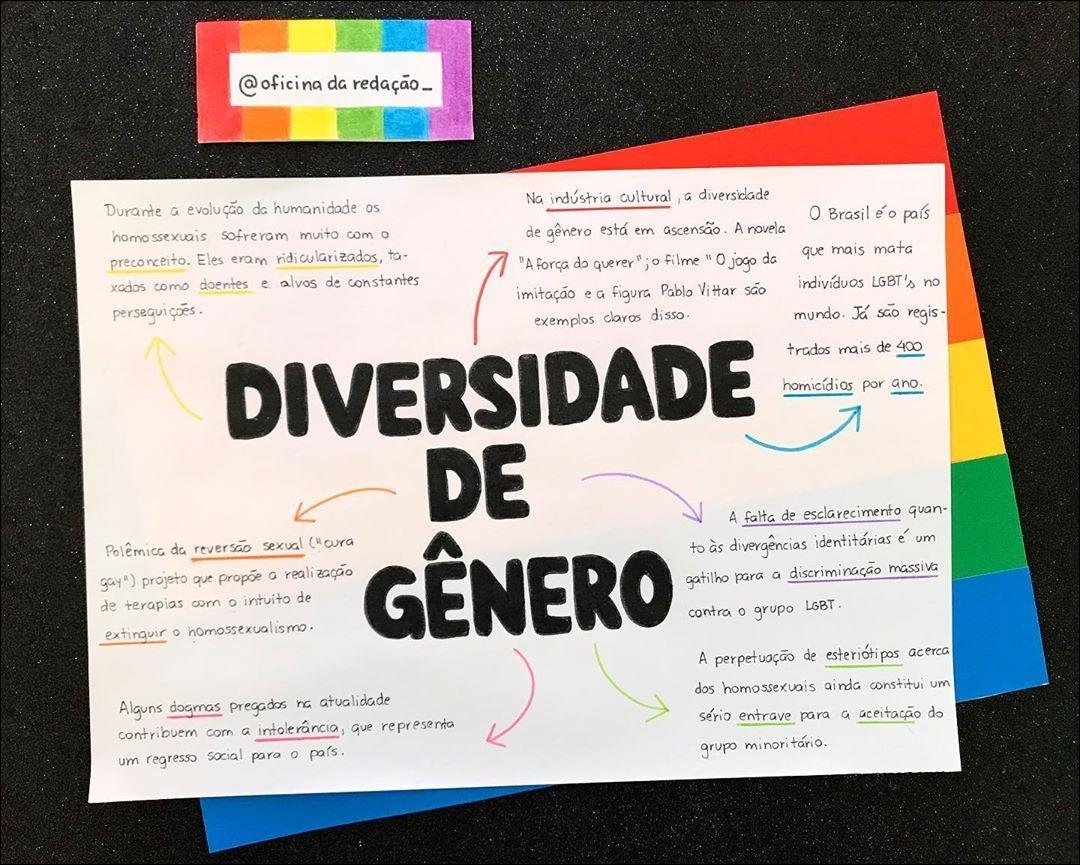 @oficina da redação_
Durante a evolução da humanidade os
homossexuais sofreram muito com o
preconceito. Eles eram ridicularizados, ta-
xados como doentes e alvos de constantes
perseguições.
Na indústria cultural, a diversidade
de gênero está em ascensão. A novela
"A força do querer"; o filme "O jogo da
imitação e a figura Pablo Vittar são
exemplos claros disso.
O Brasil é o país
que mais mata
indivíduos LGBT's no
mundo. Já são regis-
trados mais de 400
homicídios por ano.
DIVERSIDADE
DE
GÊNERO
Polêmica da reversão sexual ("cura
gay") projeto que propõe a realização
de terapias com o intuito de
extinguir o homossexualismo.
A falta de esclarecimento quan-
to às divergências identitárias é um
gatilho para a discriminação massiva
contra o grupo LGBT.
Alguns dogmas pregados na atualidade
contribuem com a intolerância, que representa
um regresso social para o país.
A perpetuação de esteriótipos acerca
dos homossexuais ainda constitui um
sério entrave para a aceitação do
grupo minoritário.